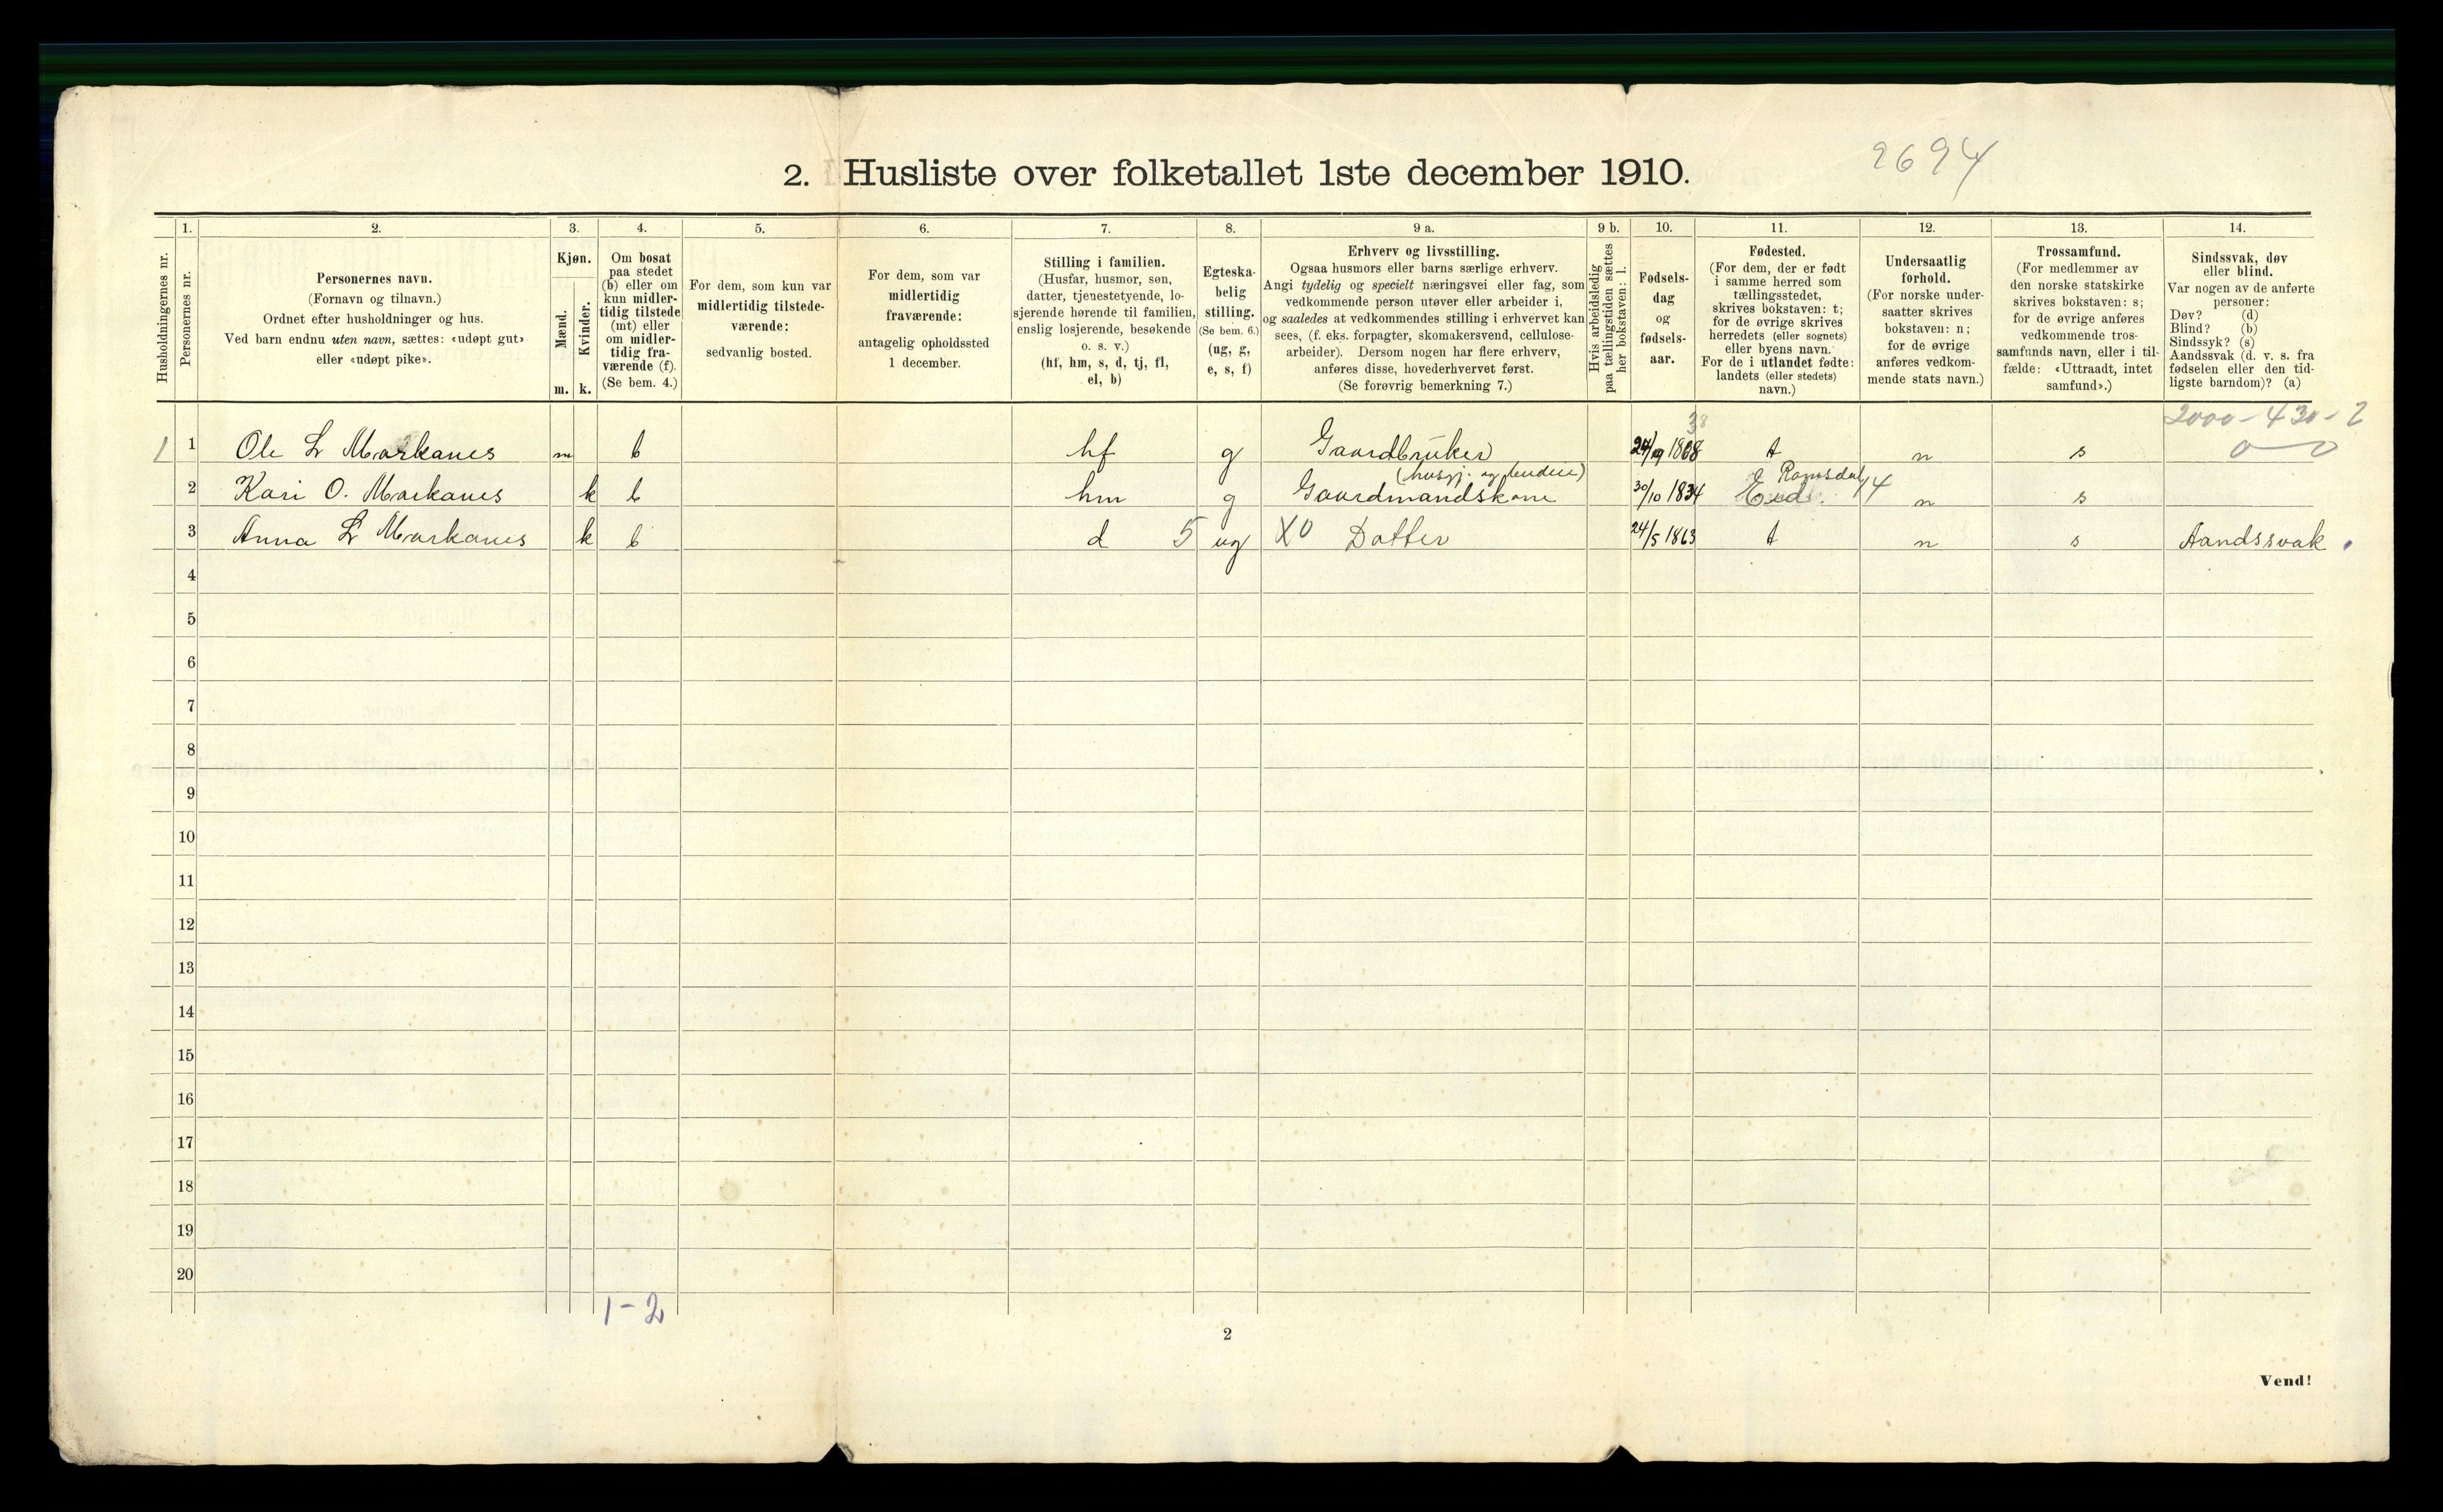 2694
2. Husliste over folketallet 1ste december 1910.
Husholdningernes nr.
1.
Personernes nr.
2.
Personernes navn.
(Fornavn og tilnavn.)
Ordnet efter husholdninger og hus.
Ved barn endnu uten navn, sættes: «udøpt gut»
eller «udøpt pike».
3.
Kjøn.
Mænd.
Kvinder.
m. k.
4.
Om bosat
paa stedet
(b) eller om
kun midler-
tidig tilstede
(mt) eller
om midler-
tidig fra-
værende (f).
(Se bem. 4.)
5.
For dem, som kun var
midlertidig tilstede-
værende:
sedvanlig bosted.
6.
For dem, som var
midlertidig
fraværende:
antagelig opholdssted
1 december.
7.
Stilling i familien.
(Husfar, husmor, søn,
datter, tjenestetyende, lo-
sjerende hørende til familien,
enslig losjerende, besøkende
o. s. v.)
(hf, hm, s, d, tj, fl,
el, b)
8.
Egteska-
belig
stilling.
(Se bem. 6.)
(ug, g,
e, s, f)
9 a.
Erhverv og livsstilling.
Ogsaa husmors eller barns særlige erhverv.
Angi tydelig og specielt næringsvei eller fag, som
vedkommende person utøver eller arbeider i,
og saaledes at vedkommendes stilling i erhvervet kan
sees, (f. eks. forpagter, skomakersvend, cellulose-
arbeider). Dersom nogen har flere erhverv,
anføres disse, hovederhvervet først.
(Se forøvrig bemerkning 7.)
9 b.
Hvis arbeidsledig
paa tællingstiden sættes
her bokstaven: l.
10.
Fødsels-
dag
og
fødsels-
aar.
11.
Fødested.
(For dem, der er født
i samme herred som
tællingsstedet,
skrives bokstaven: t;
for de øvrige skrives
herredets (eller sognets)
eller byens navn.
For de i utlandet fødte:
landets (eller stedets)
navn.)
12.
Undersaatlig
forhold.
(For norske under-
saatter skrives
bokstaven: n;
for de øvrige
anføres vedkom-
mende stats navn.)
13.
Trossamfund.
(For medlemmer av
den norske statskirke
skrives bokstaven: s;
for de øvrige anføres
vedkommende tros-
samfunds navn, eller i til-
fælde: «Uttraadt, intet
samfund».)
14.
Sindssvak, døv
eller blind.
Var nogen av de anførte
personer:
Døv? (d)
Blind? (b)
Sindssyk? (s)
Aandssvak (d. v. s. fra
fødselen eller den tid-
ligste barndom)? (a)
2000-430-2
38
1 1 Ole L Markanes m b hf g Gaardbruker 24/9 t n s 0 0
(husgj.
Romsdal
2 Kari O. Markanes k b hm g Gaardmandskone 30/10 1834 14 n s
3 Anna L Markanes k b d 5 ug X0 Datter 24/5 1863 t n s Aandssvak
4
5
6
7
8
9
10
11
12
13
14
15
16
17
18
19
20
1-2
2
Vend!